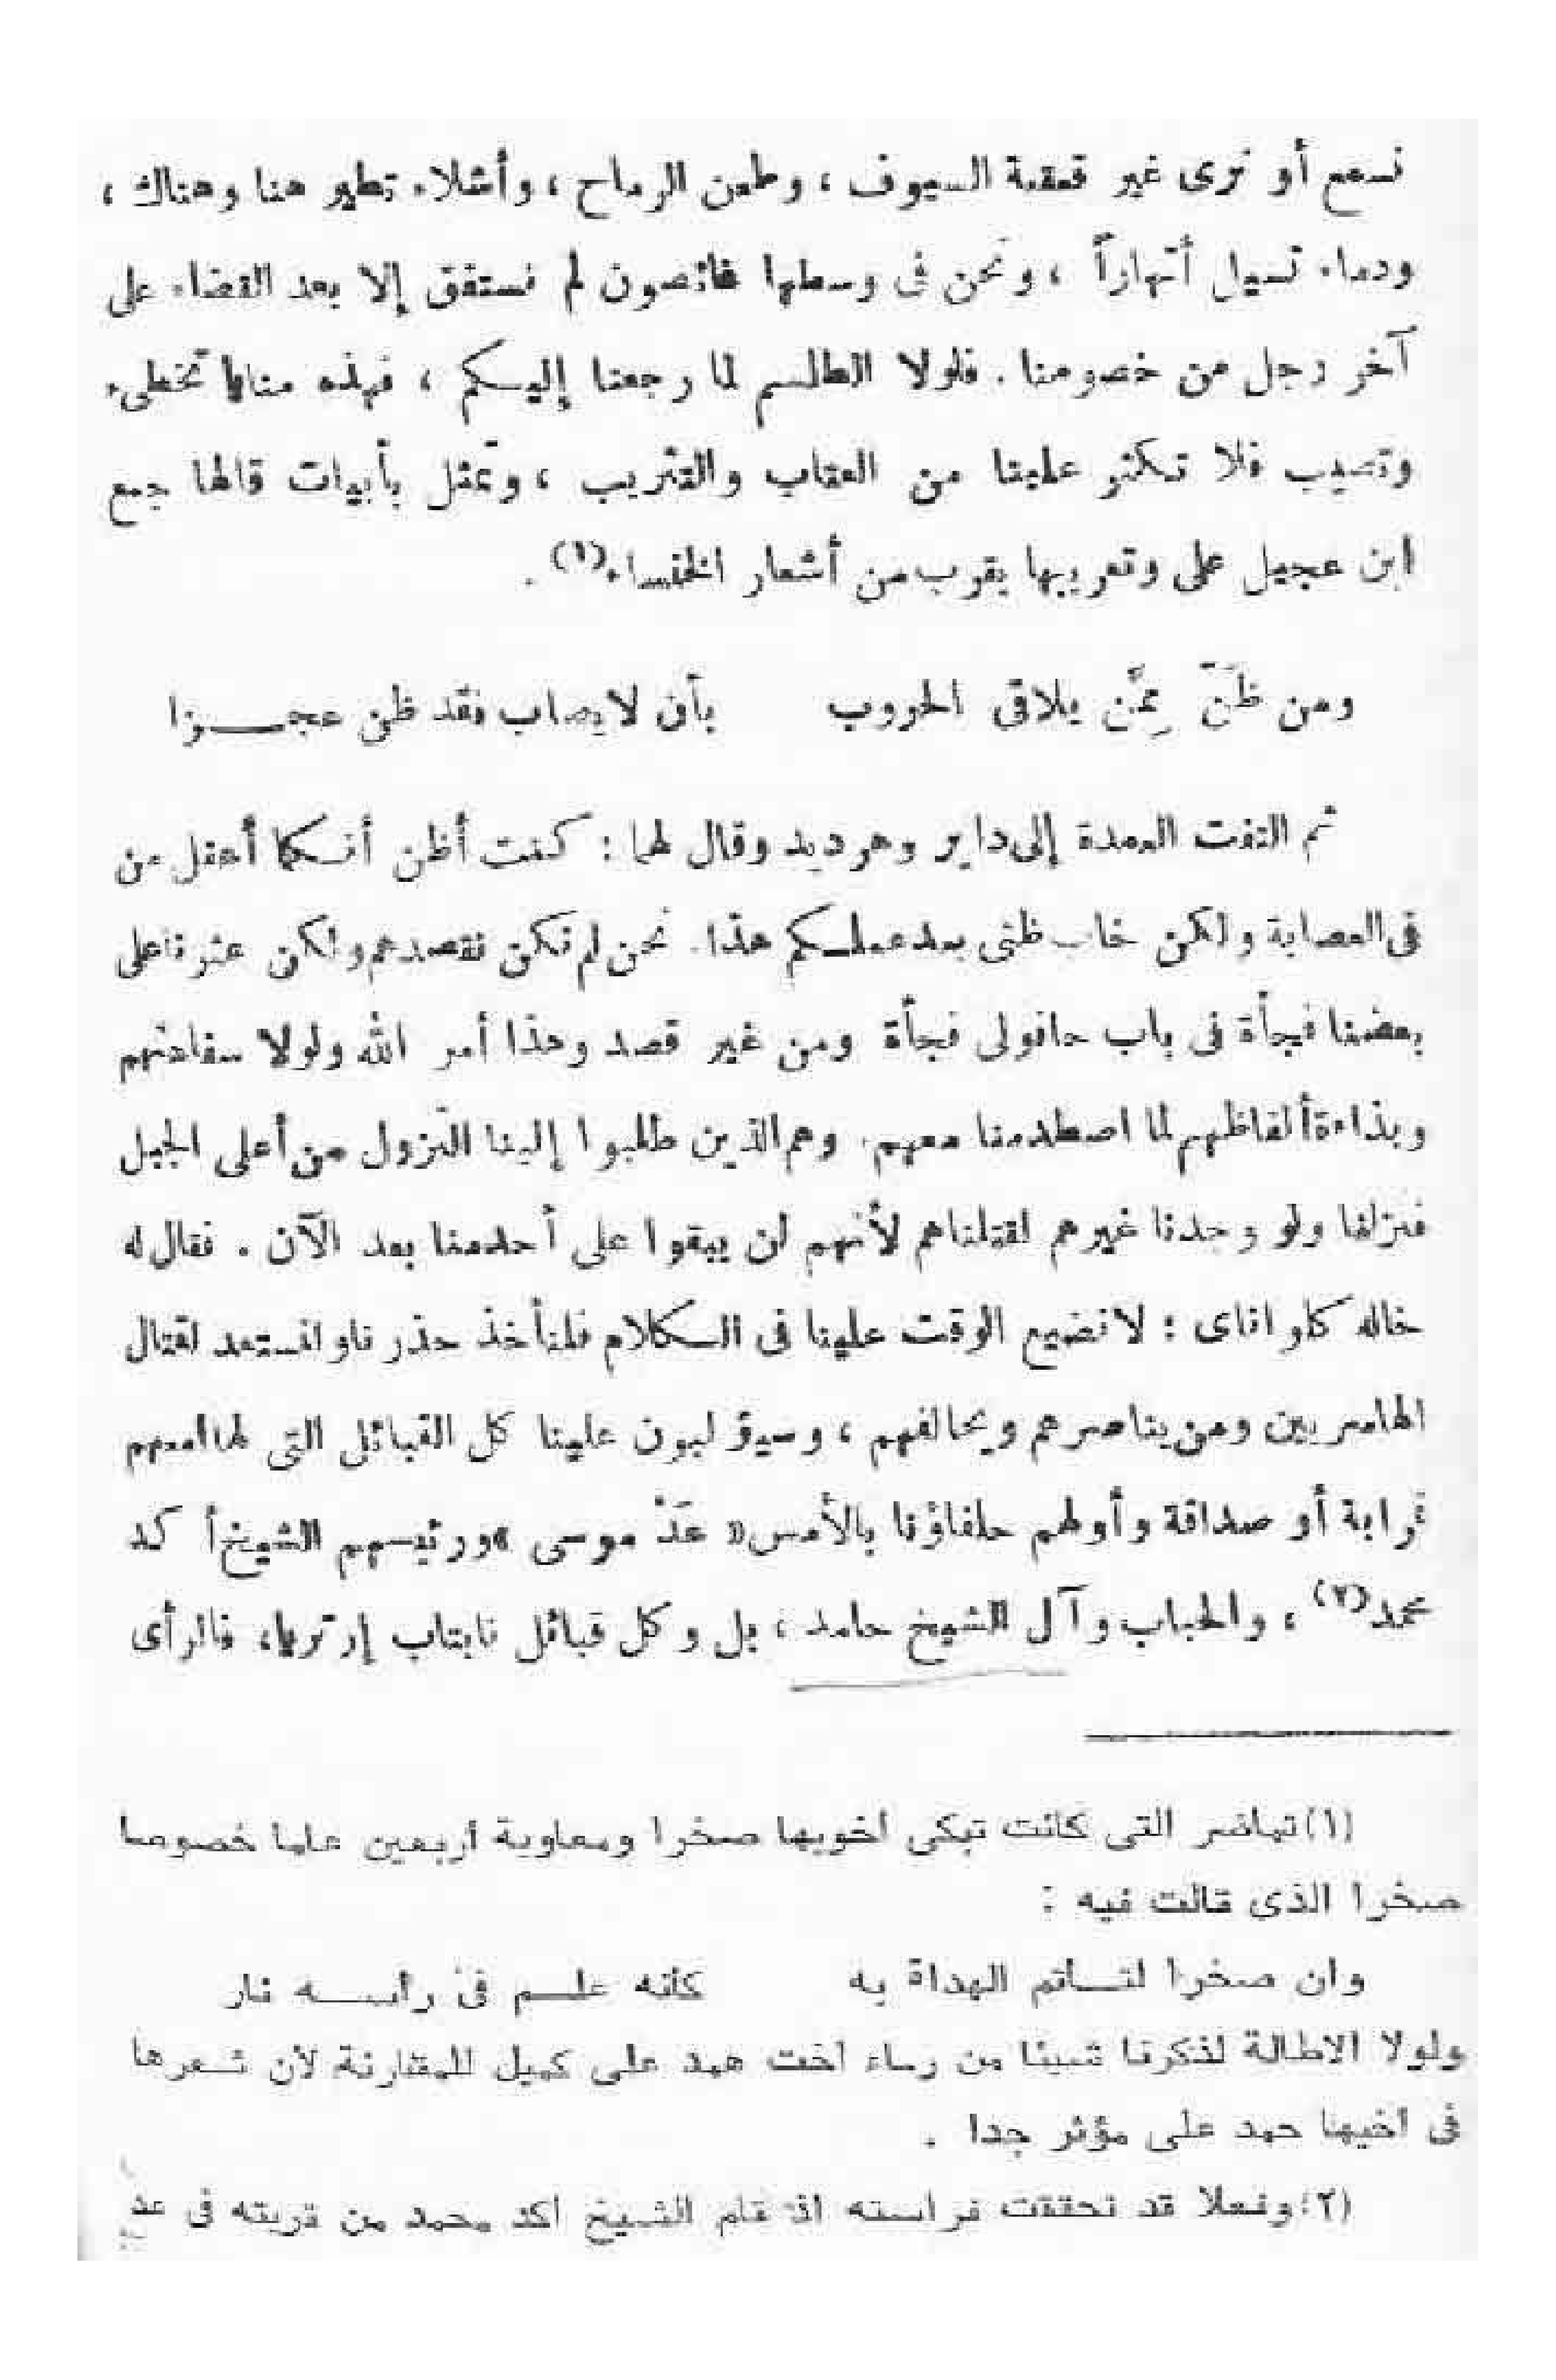 نسمع أو نرى غير قعقعة السيوف ، وطعن الرماح ، وأشلاء تطير هنا وهناك ،
ودماء تسيل أنهاراً ، ونحن فى وسطها غائصون لم نستفق إلا بعد القضاء على
آخر رجل من خصومنا . فلولا الطلسم لما رجعنا إليكم ، فهذه منايا تخطىء
وتصيب فلا تكثر علينا من العتاب والتثريب ، وتمثل بأبيات قالها جمع
ابن عجيل على وتعريبها يقرب من أشعار الخنساء(١) .
ومن ظَنّ مِمَّن يلاقى الحروب بأن لا يصاب فقد ظن عجــزا
ثم التفت العمدة إلى داير وهرديد وقال لهما : كنت أظن أنكما أعقل من
فى العصابة ولكن خاب ظنى بعد عملكم هذا . نحن لم نكن نقصدهم ولكن عثرنا على
بعضنا فجأة فى باب حافولى فجأة ومن غير قصد وهذا أمر الله ولولا سفاهتهم
وبذاءة ألفاظهم لما اصطدمنا معهم . وهم الذين طلبوا إلينا النزول من أعلى الجبل
فنزلنا ولو وجدنا غيرهم لقتلناهم لأنهم لن يبقوا على أحد منا بعد الآن . فقال له
خاله كلو اناى : لا نضيع الوقت علينا فى الكلام فلنأخذ حذرنا ولنستعد لقتال
الهامريين ومن يناصرهم ويحالفهم ، وسيؤلبون علينا كل القبائل التى لها معهم
قرابة أو صداقة وأولهم حلفاؤنا بالأمس « عَدْ موسى » ورئيسهم الشيخ أكد
محمد(٢) ، والحباب وآل الشيخ حامد ، بل وكل قبائل نابتاب إرتريا، فالرأى
(١) تماضر التى كانت تبكى أخويها صخرا ومعاوية أربعين عاما خصوصا
صخرا الذى قالت فيه :
وان صخرا لتــأتم الهداة به كأنه علــم فى رأســه نار
ولولا الاطالة لذكرنا شيئا من رساء أخت همد على كميل للمقارنة لأن شعرها
فى أخيها حمد على مؤثر جدا .
(٢) وفعلا قد تحققت فراسته اذ قام الشيخ أكد محمد من قريته فى عد